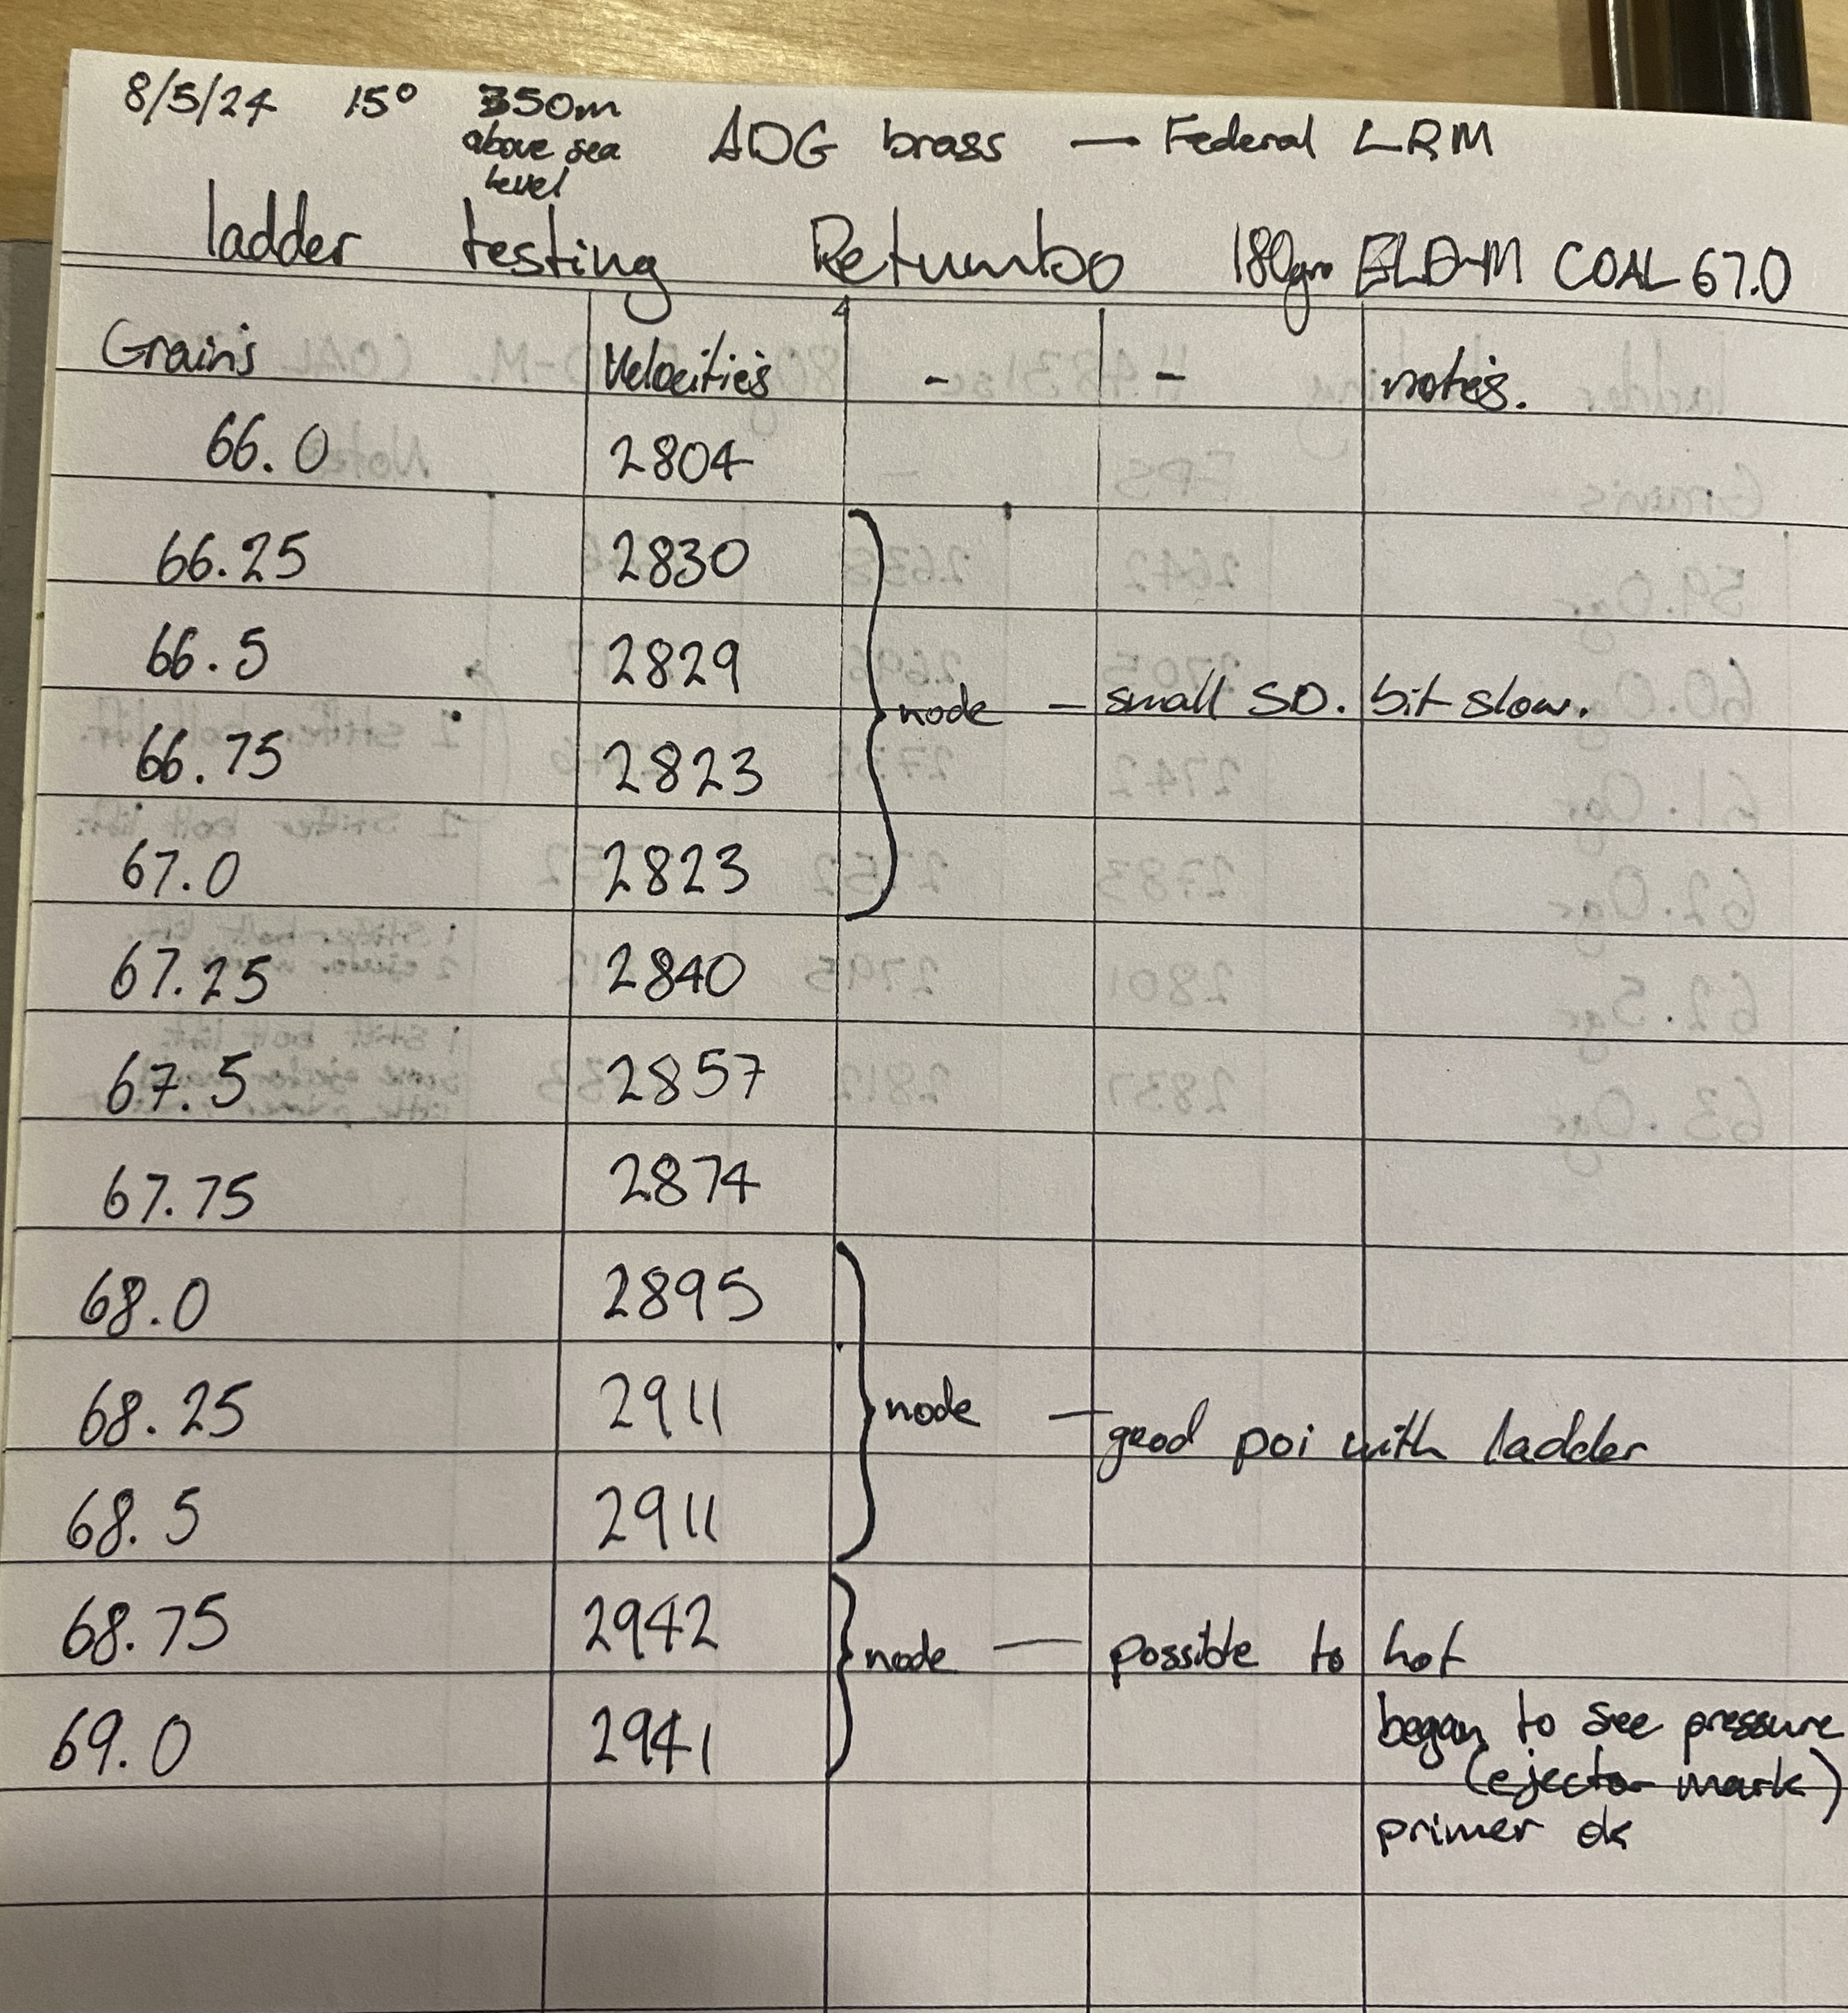 8/5/24 15° 350m above sea level ADG brass — Federal LRM
ladder testing Retumbo 180gr ELD-M COAL 67.0
Grains Velocities - - notes.
66.0 2804
66.25 2830
66.5 2829
node – small SD. bit slow.
66.75 2823
67.0 2823
67.25 2840
67.5 2857
67.75 2874
68.0 2895
68.25 2911
node — good poi with ladder
68.5 2911
68.75 2942
node — possible to hot
69.0 2941
began to see pressure
(ejector mark)
primer ok